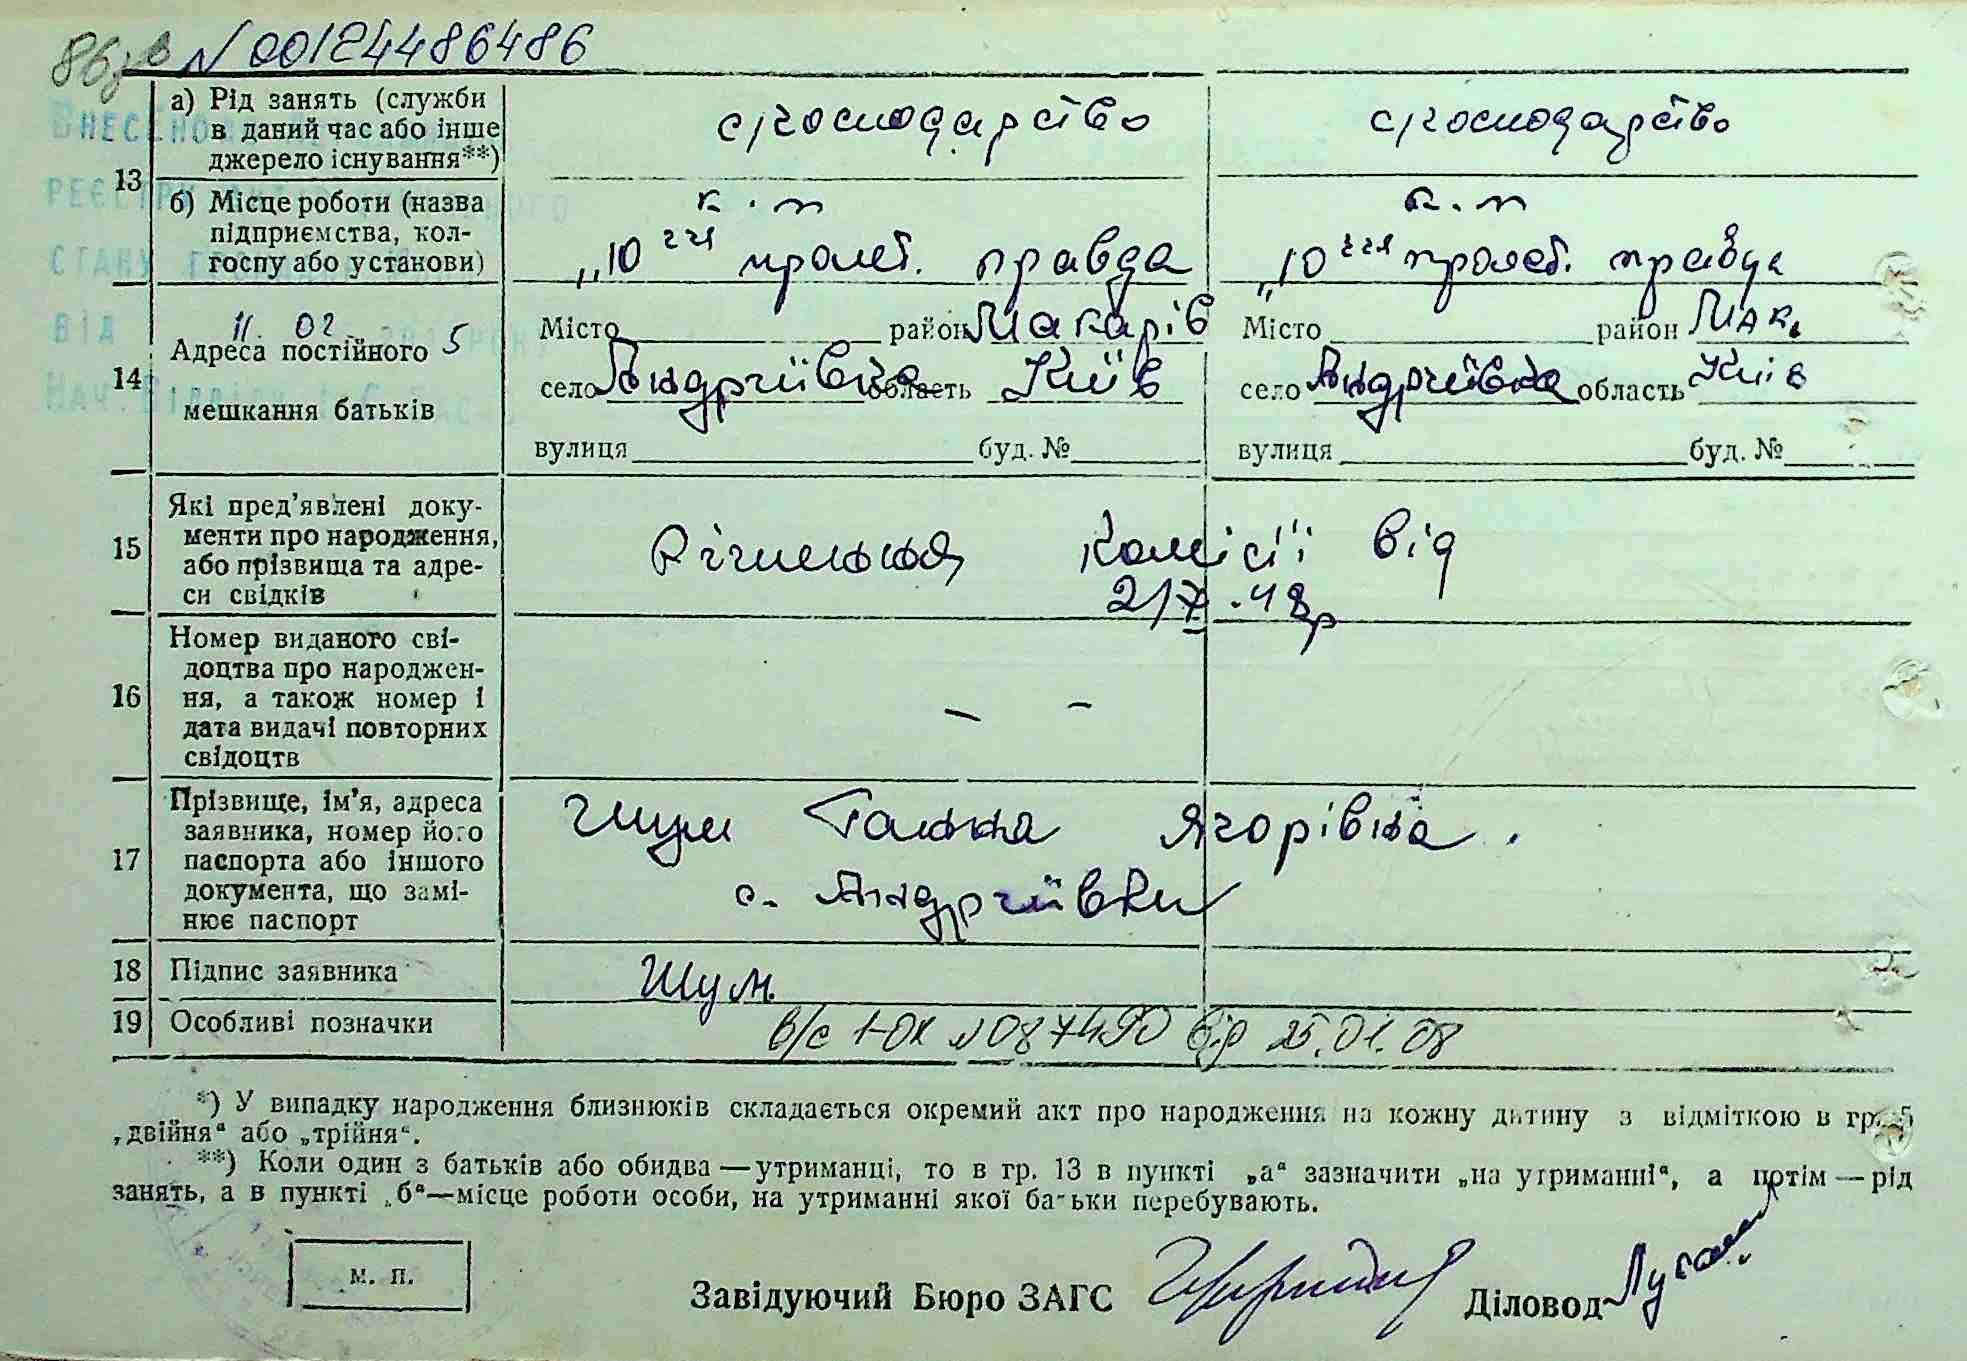 N 00124486486
а) Рід занять (служби
в даний час або інше
джерело існування**)
с/господарство
с/господарство
13
б) Місце роботи (назва
підприємства, кол-
госпу або установи)
к. п
„10 ччя пролет. правда
к. п
„10 ччя пролет. правда
14
11. 02 5
Адреса постійного
мешкання батьків
Місто район Макарів
село Андріївка область Київ
вулиця буд. №
Місто район Мак.
село Андріївка область Київ
вулиця буд. №
15
Які пред'явлені доку-
менти про народження,
або прізвища та адре-
си свідків
Рішення Комісії від
2/7.48р
16
Номер виданого сві-
доцтва про народжен-
ня, а також номер і
дата видачі повторних
свідоцтв
– –
17
Прізвище, ім'я, адреса
заявника, номер його
паспорта або іншого
документа, що замі-
нює паспорт
Шум Ганна Ягорівна.
с. Андріївки
18
Підпис заявника
Шум.
19
Особливі позначки
в/с 1-ОК №087490 від 25.01.08
*) У випадку народження близнюків складається окремий акт про народження на кожну дитину з відміткою в гр. 5
„двійня“ або „трійня“.
**) Коли один з батьків або обидва — утриманці, то в гр. 13 в пункті „а“ зазначити „на утриманні“, а потім — рід
занять, а в пункті „б“—місце роботи особи, на утриманні якої батьки перебувають.
м. п.
Завідуючий Бюро ЗАГС
Діловод